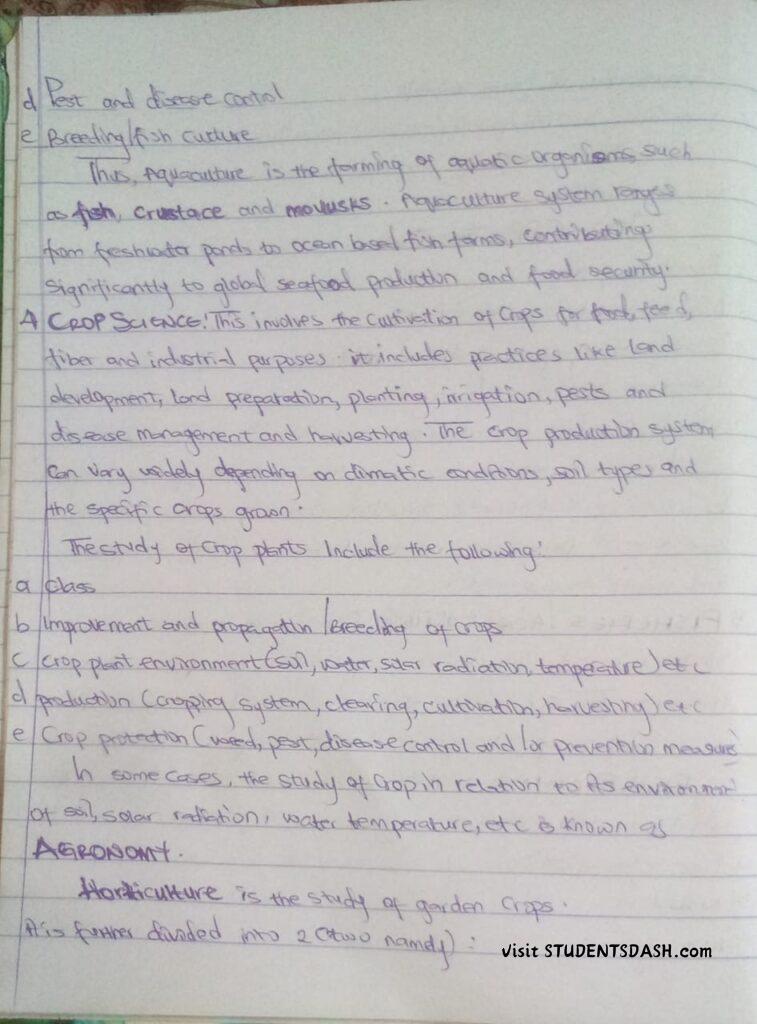 d Pest and disease control
e Breeding/fish culture
Thus, Aquaculture is the farming of aquatic organisms such
as fish, crustace and movusks. Aquaculture system ranges
from freshwater ponds to ocean based fish farms, contributing
significantly to global seafood production and food security.
4 CROP SCIENCE: This involves the cultivation of crops for food, feed,
fiber and industrial purposes. it includes practices like land
development, land preparation, planting, irrigation, pests and
disease management and harvesting. The crop production system
can vary widely depending on climatic conditions, soil types and
the specific crops grown.
The study of crop plants include the following:
a class
b Improvement and propagation/Breeding of crops
c crop plant environment (soil, water, solar radiation, temperature) etc
d production (cropping system, clearing, cultivation, harvesting) etc
e Crop protection (weed, pest, disease control and/or prevention measure
In some cases, the study of crop in relation to its environment
of soil, solar radiation, water temperature, etc is known as
AGRONOMY.
Horticulture is the study of garden crops.
It is further divided into 2 (two namely):
Visit STUDENTSDASH.com